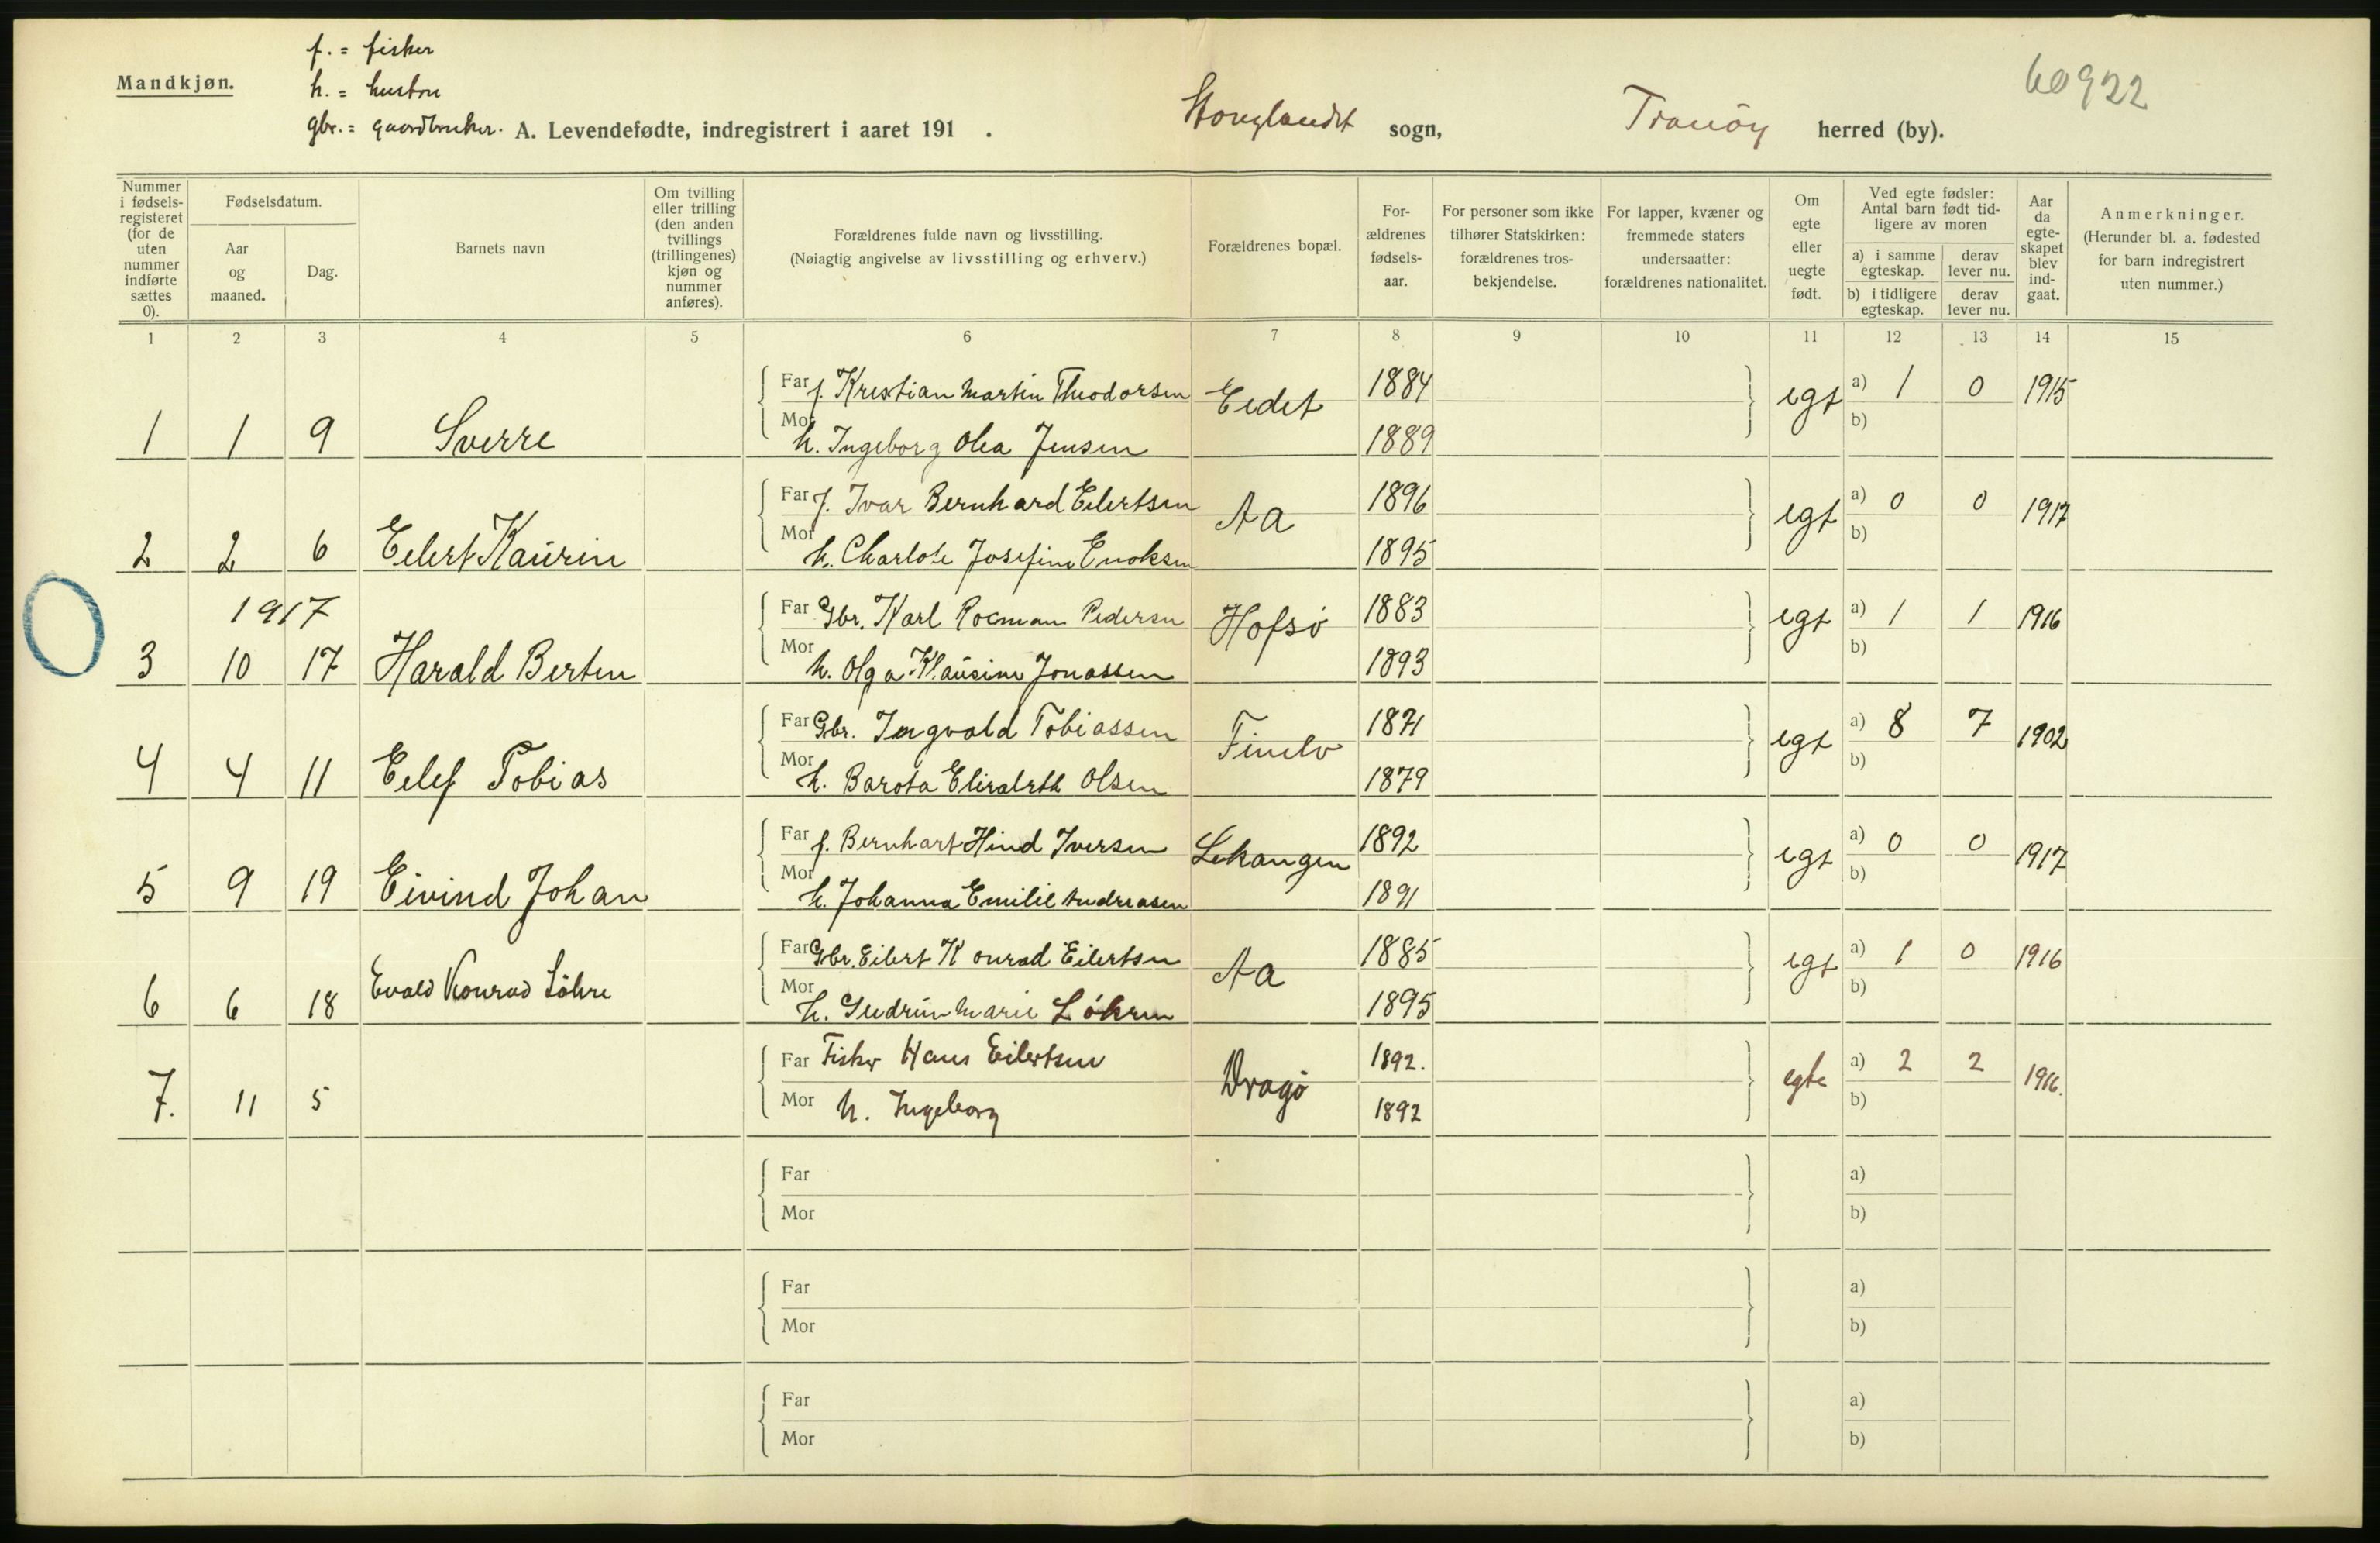 f. = fisker
Mandkjøn.
h. = hustru
gbr. = gaardbruker.
A. Levendefødte, indregistrert i aaret 191 . Stonglandet sogn, Tranöy herred (by).
60922
Nummer i fødselsregisteret (for de uten nummer indførte sættes 0).
Fødselsdatum.
Aar og maaned.
Dag.
Barnets navn
Om tvilling eller trilling (den anden tvillings (trillingenes) kjøn og nummer anføres).
Forældrenes fulde navn og livsstilling.
(Nøiagtig angivelse av livsstilling og erhverv.)
Forældrenes bopæl.
Forældrenes fødselsaar.
For personer som ikke tilhører Statskirken: forældrenes trosbekjendelse.
For lapper, kvæner og fremmede staters undersaatter: forældrenes nationalitet.
Om egte eller uegte født.
Ved egte fødsler: Antal barn født tidligere av moren
a) i samme egteskap.
derav lever nu.
b) i tidligere egteskap.
derav lever nu.
Aar da egteskapet blev indgaat.
Anmerkninger.
(Herunder bl. a. fødested for barn indregistrert uten nummer.)
1 2 3 4 5 6 7 8 9 10 11 12 13 14 15
Far f. Kristian Martin Theodorsen Eidet 1884 egt a) 1 0 1915
1 1 9 Sverre Mor h. Ingeborg Olea Jensen 1889 b)
Far f. Ivar Bernhard Eilertsen Aa 1896 egt a) 0 0 1917
2 2 6 Eilert Kaurin Mor h. Charlote Josefine Enoksen 1895 b)
1917 Far Gbr. Karl Rocman Pedersen Hofsö 1883 egt a) 1 1 1916
3 10 17 Harald Berten Mor h. Olga Klausine Jonassen 1893 b)
Far Gbr. Ingvald Tobiassen 1871 egt a) 8 7 1902
4 4 11 Eelef Tobias Mor h. Barota Elisabeth Olsen 1879 b)
Far f. Bernhart Hind Iversen Lekangen 1892 egt a) 0 0 1917
5 9 19 Eivind Johan Mor h. Johanna Emilie Andreasen 1891 b)
Far Gbr. Eilert Konrad Eilertsen Aa 1885 egt a) 1 0 1916
6 6 18 Evald Konrad Löhre Mor h. Gudrun Marie Löhren 1895 b)
Far Fisker Hans Eilertsen Dragö 1892. egte a) 2 2 1916.
7. 11 5 Mor h. Ingeborg 1892 b)
Far a)
Mor b)
Far a)
Mor b)
Far a)
Mor b)